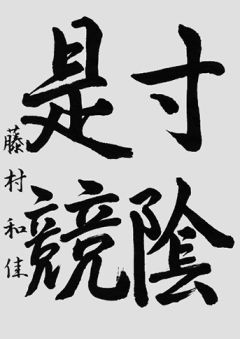 寸陰
是競
藤村和佳